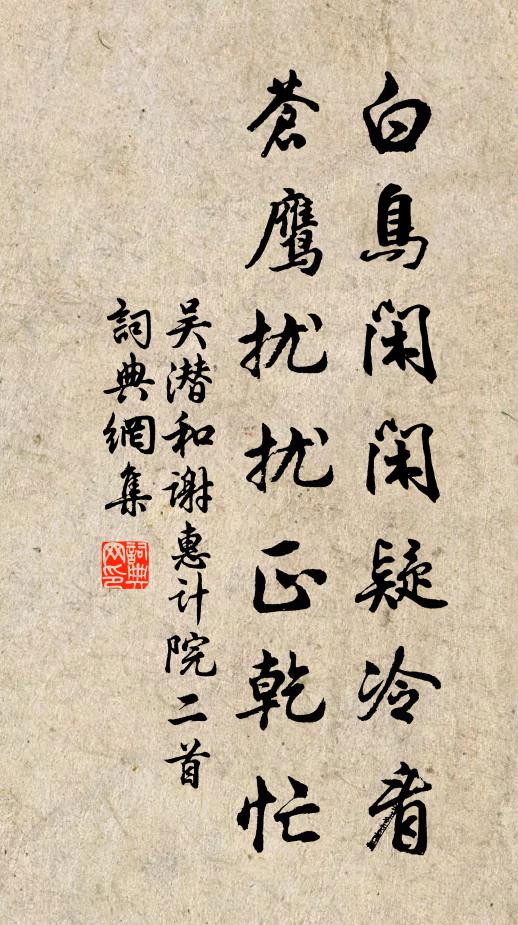 白鳥閑閑疑冷看
蒼鷹扰扰正乾忙
吴潜和谢惠计院二首
詞典網集
詞典网印